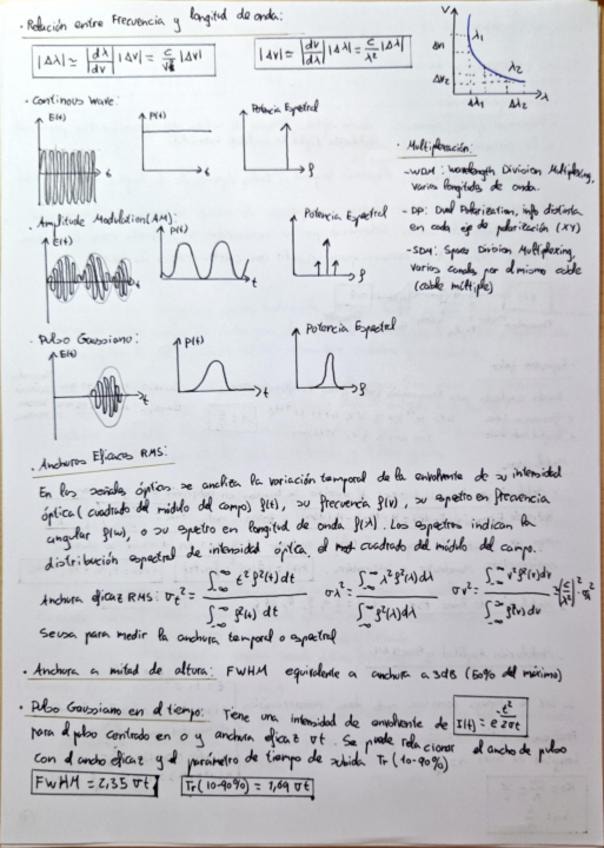 · Relación entre Frecuencia y longitud de onda:
|Δλ| ≃ |dλ/dν| |Δν| = c/ν² |Δν|
|Δν| ≃ |dν/dλ| |Δλ| = c/λ² |Δλ|
ν
Δν1
Δν2
λ1
λ2
Δλ1
Δλ2
λ
· Continous Wave:
E(t)
t
P(t)
t
Potencia Espectral
f
· Multiplexación:
-WDM: Wavelength Division Multiplexing,
varias longitudes de onda.
- DP: Dual Polarization, info distinta
en cada eje de polarización (XY)
-SDM: Space Division Multiplexing,
varios canales por el mismo cable
(cable múltiple)
· Amplitude Modulation (AM):
E(t)
t
P(t)
t
Potencia Espectral
f
· Pulso Gaussiano:
E(t)
t
P(t)
t
Potencia Espectral
f
· Anchuras Eficaces RMS:
En las señales ópticas se analiza la variación temporal de la envolvente de su intensidad
óptica (cuadrado del módulo del campo) f(t), su frecuencia f(ν), su espectro en frecuencia
angular f(w), o su espectro en longitud de onda f(λ). Los espectros indican la
distribución espectral de intensidad óptica, el cuadrado del módulo del campo.
Anchura eficaz RMS: σt² = ∫-∞^∞ t² f²(t) dt / ∫-∞^∞ f²(t) dt   σλ² = ∫-∞^∞ λ² f²(λ) dλ / ∫-∞^∞ f²(λ) dλ   σν² = ∫-∞^∞ ν² f²(ν) dν / ∫-∞^∞ f²(ν) dν
Se usa para medir la anchura temporal o espectral
· Anchura a mitad de altura: FWHM equivalente a anchura a 3dB (50% del máximo)
· Pulso Gaussiano en el tiempo: Tiene una intensidad de envolvente de I(t) = e^ t²/2σt
para el pulso centrado en 0 y anchura eficaz σt. Se puede relacionar el ancho de pulso
con el ancho eficaz y el parámetro de tiempo de subida Tr (10-90%)
FWHM = 2,35 σt
Tr (10-90%) = 1,69 σt